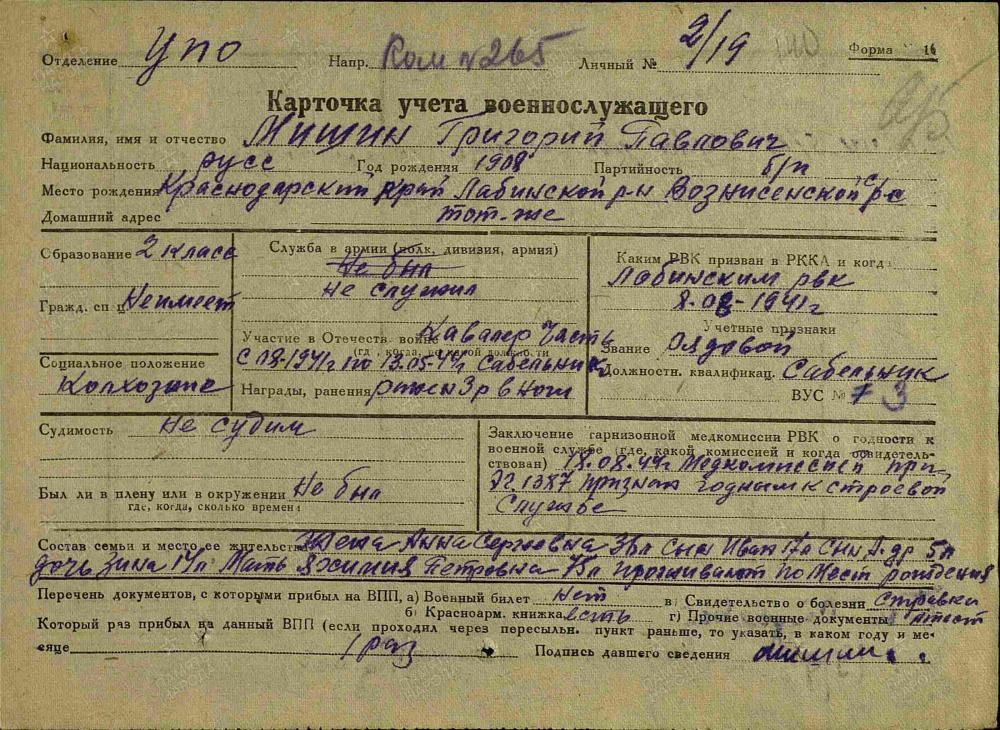 Форма № 16
Отделение УПО Напр. Ком №265 Личный № 2/19
Карточка учета военнослужащего
Фамилия, имя и отчество Мишин Григорий Павлович
Национальность русс Год рождения 1908 Партийность б/п
Место рождения Краснодарский край Лабинской р-н Вознисенской с/с
Домашний адрес тот-же
Образование 2 класс
Гражд. сп-ц Неимеет
Социальное положение
Колхозник
Служба в армии (полк, дивизия, армия)
Не был
не служил
Участие в Отечеств. войне Кавалер Часть
(где, когда, в какой должности
с 18-1941г по 13.05-44г Сабельник
Награды, ранения ранен 3 р в ноги
Каким РВК призван в РККА и когда
Лабинским рвк
8.08-1941г
Учетные признаки
Звание Рядовой
Должностн. квалификац. Сабельник
ВУС № 3
Судимость Не судим
Был ли в плену или в окружении Не был
где, когда, сколько времени
Заключение гарнизонной медкомиссии РВК о годности к
военной службе (где, какой комиссией и когда освидетель-
ствован) 18.08.44г Медкомиссией при
ЭГ.1387 признан годным к строевой
Службе
Состав семьи и место ее жительства Жена Анна Сергеевна Сын Иван 17л Сын 5л
дочь Зина Мать Петровна проживают по Мест рождения
Перечень документов, с которыми прибыл на ВПП, а) Военный билет нет в) Свидетельство о болезни справки
б) Красноарм. книжка есть г) Прочие военные документы
Который раз прибыл на данный ВПП (если проходил через пересыльн. пункт раньше, то указать, в каком году и ме-
сяце 1 раз Подпись давшего сведения Мишин